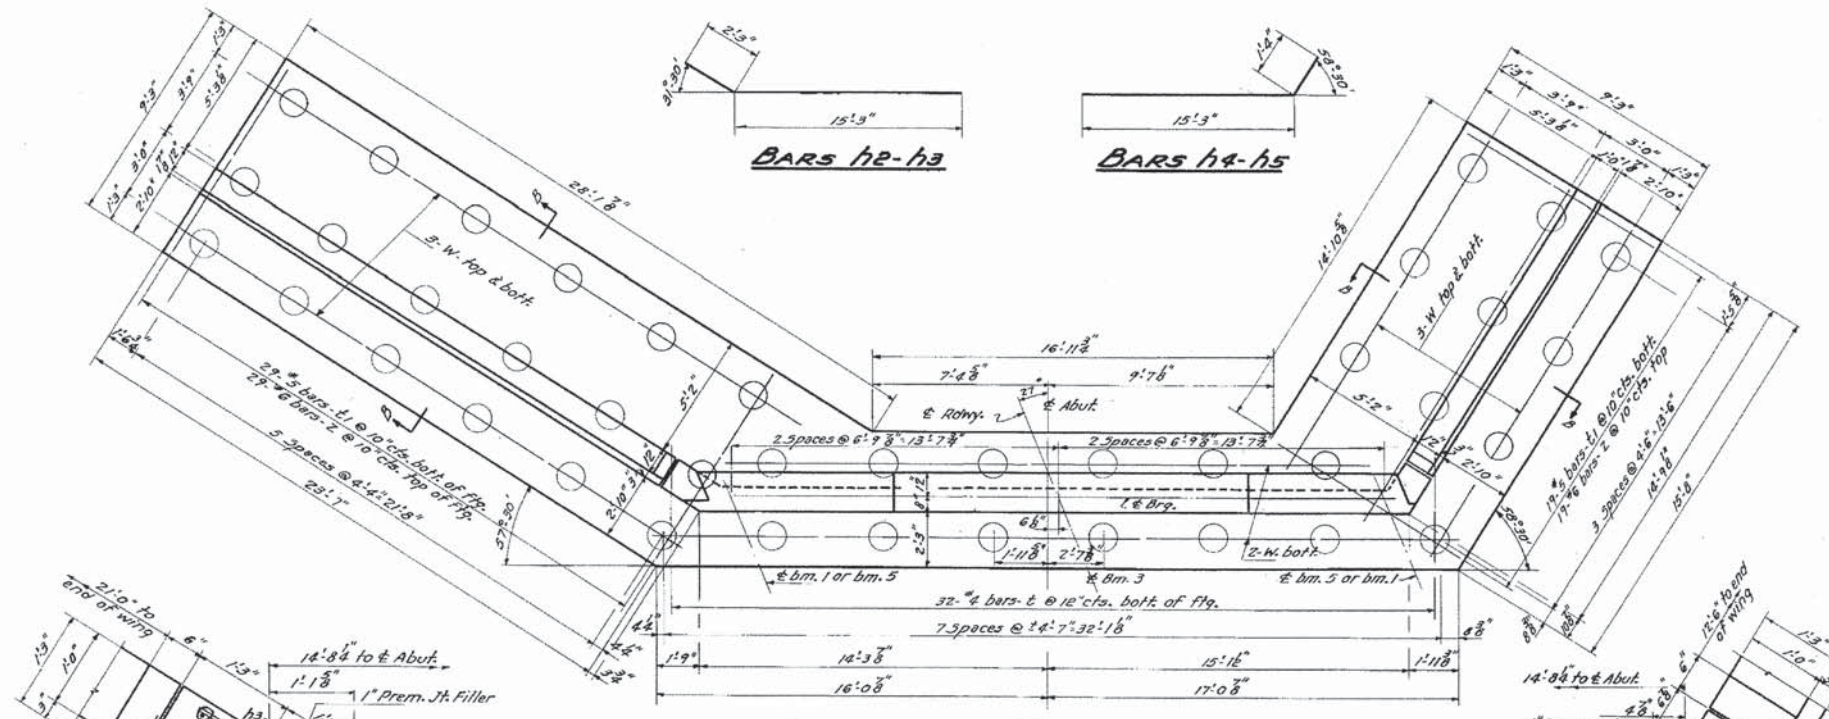 2'-3"
31°-30'
15'-3"
BARS h2-h3
1'-4"
58°-30'
15'-3"
BARS h4-h5
9'-3"
1'-3"
3'-9"
5'-3⅛"
3'-0"
1'-3"
2'-10"
12"
28'-1⅞"
B
3-W. top & bott.
B
5'-2"
29-#5 bars-t1 @ 10" cts. bott. of ftg.
29-#6 bars-z @ 10" cts. top of ftg.
5 Spaces @ 4'-4"=21'-8"
23'-7"
57°-30'
2'-10"
12"
16'-11¾"
7'-4⅝"
9'-7⅛"
27°
℄ Rdwy.
℄ Abut.
2 Spaces @ 6'-9⅞"=13'-7¾"
2 Spaces @ 6'-9⅞"=13'-7¾"
12"
8"
℄ Brg.
2'-3"
6⅛"
1'-11⅝"
2'-7⅜"
2-W. bott.
℄ bm. 1 or bm. 5
℄ Bm. 3
℄ bm. 5 or bm. 1
32-#4 bars-t @ 12" cts. bott. of ftg.
7 Spaces @ ±4'-7"=32'-1⅛"
4¼"
8⅜"
4¼"
3¾"
1'-9"
14'-3⅞"
15'-1½"
1'-11⅜"
16'-0⅞"
17'-0⅞"
1'-3"
9'-3"
3'-9"
5'-3⅛"
3'-0"
1'-3"
2'-10"
14'-10⅝"
3-W top & bott.
B
B
5'-2"
12"
3"
2'-10"
58°-30'
1'-5⅝"
19-#5 bars-t1 @ 10" cts. bott.
19-#6 bars-z @ 10" cts. top
3 Spaces @ 4'-6"=13'-6"
14'-9⅛"
15'-8"
21'-0" to
end of wing
6"
1'-3"
1'-3"
1'-0"
14'-8¼" to ℄ Abut.
1'-1⅝"
1" Prem. Jt. Filler
h3
12'-6" to end
of wing
1'-3"
1'-0"
6"
14'-8¼ to ℄ Abut.
4⅞"